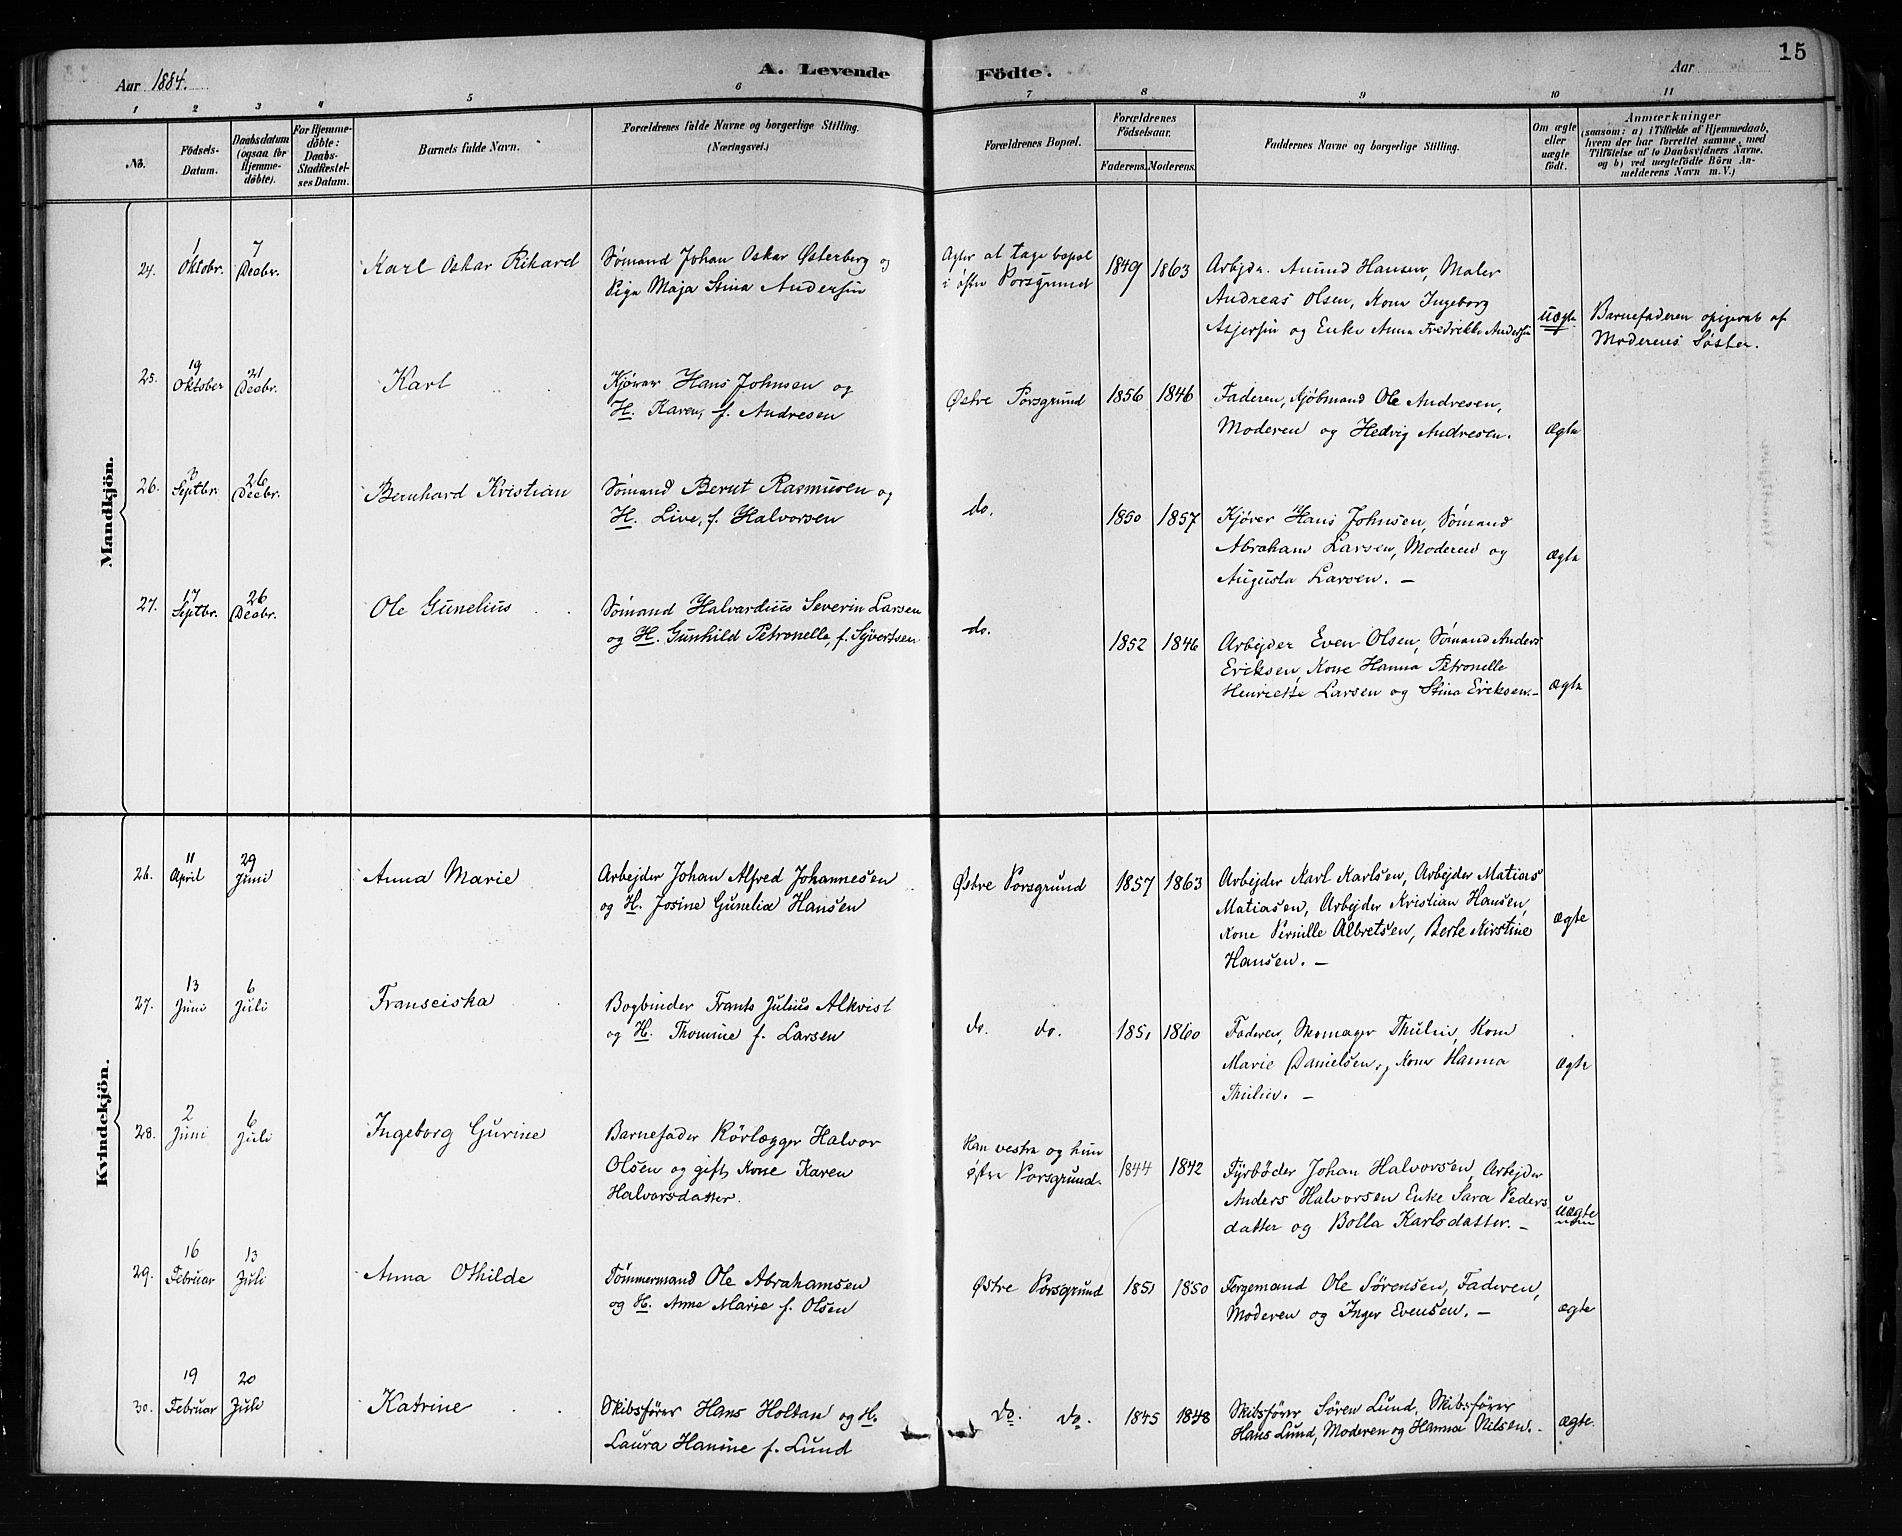 15
Aar 1884.
A. Levende
Födte.
Aar
1 2 3 4 5 6 7 8 9 10 11
No.
Födsels-
Datum.
Daabsdatum
(ogsaa for
Hjemme-
döbte).
For Hjemme-
döbte:
Daabs-
Stadfæstel-
ses Datum.
Barnets fulde Navn.
Forældrenes fulde Navne og borgerlige Stilling.
(Næringsvei.)
Forældrenes Bopæl.
Forældrenes
Födselsaar.
Faderens.
Moderens.
Faddernes Navne og borgerlige Stilling.
Om ægte
eller
uægte
födt.
Anmærkninger
(saasom: a) i Tilfælde af Hjemmedaab,
hvem der har forrettet samme, med
Tilföielse af to Daabsvidners Navne,
og b) ved uægtefödte Börn An-
melderens Navn m. V.)
Mandkjön.
24.
1
Oktobr.
7
Decbr.
Karl Oskar Rikard
Sømand Johan Oskar Østerberg og
Pige Maja Stina Andersen
Agter at tage bopæl
i østre Porsgrund
1849
1863
Arbejdr. Amund Hansen, Maler
Andreas Olsen, Kone Ingeborg
Asjersen og Enke Anna Fredrikke Andersen
uægte
Barnefaderen opgivet af
Moderens Søster.
25.
19
Oktober
21
Decbr.
Karl
Kjører Hans Johnsen og
H. Karen, f. Andresen
Østre Porsgrund
1856
1846
Faderen, Kjöbmand Ole Andresen,
Moderen og Hedvig Andresen.
Ægte
26.
Septbr.
26
Decbr.
Bernhard Kristian
Sømand Bernt Rasmusen og
H. Live, f. Halvorsen
do.
1850
1857
Kjører Hans Johnsen, Sømand
Abraham Larsen, Moderen og
Augusta Larsen. —
Ægte
27.
17
Septbr.
26
Decbr.
Ole Gunelius
Sømand Halvardius Severin Larsen
og H. Gunhild Petronelle, f. Syvertsen
do.
1852
1846
Arbejder Even Olsen, Sømand Anders
Ericksen, Kone Hanna Petronelle
Henriette Larsen og Stina Ericksen. —
Ægte
Kvindekjön.
26.
11
April
29
Juni
Anna Marie
Arbejder Johan Alfred Johannesen
og H. Josine Gunelia Hansen
Østre Porsgrund
1857
1863
Arbejder Karl Karlsen, Arbejder Matias
Matiasen, Arbejder Kristian Hansen,
Kone Pernille Albretsen, Berte Kirstine
Hansen. —
Ægte
27.
13
Juni
6
Juli
Franseiska
Bogbinder Frants Julius Alkvist
og H. Thomine f. Larsen
do. do.
1851
1860
Faderen, Skomager Thulin, Kone
Marie Danielsen, Kone Hanna
Thulin. —
Ægte
28.
2
Juni
6
Juli
Ingeborg Gurine
Barnefader Rörlægger Halvor
Olsen og gift Kone Karen
Halvorsdatter.
Han vestre og hun
østre Porsgrund.
1844
1842
Fyrböder Johan Halvorsen, Arbejder
Anders Halvorsen Enke Sara Peders
datter og Bolla Karlsdatter. —
uægte
29.
16
Februar
13
Juli
Anna Othilde
Tömmermand Ole Abrahamsen
og H. Anne Marie f. Olsen
Østre Porsgrund
1851
1850
Fergemand Ole Sörensen, Faderen,
Moderen og Inger Evensen. —
ægte
30.
19
Februar
20
Juli
Katrine
Skibsförer Hans Holtan og H.
Laura Hanine f. Lund
do. do.
1845
1848
Skibsförer Sören Lund, Skibsförer
Hans Lund, Moderen og Hanna Nilsen. -
ægte.